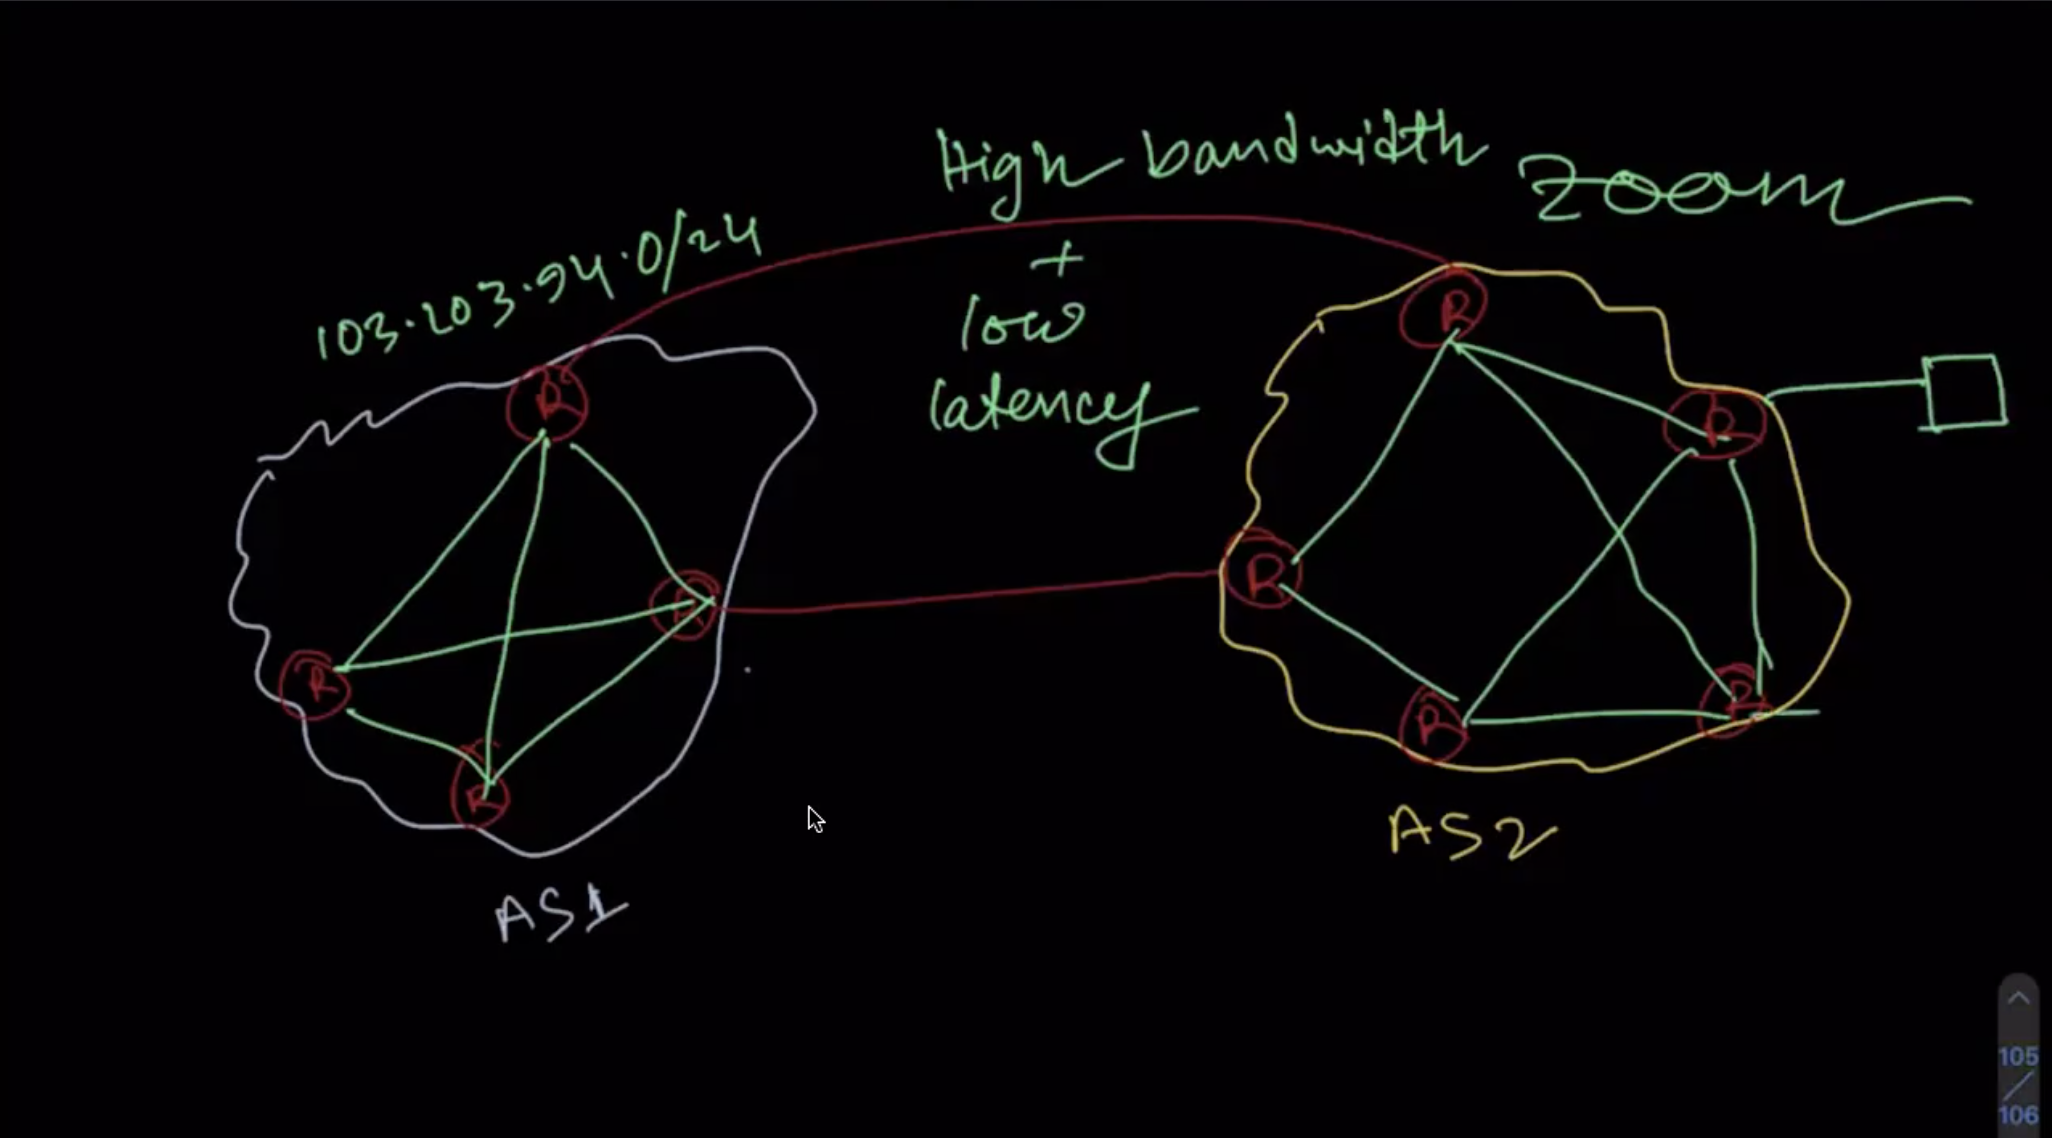 High bandwidth
zoom
+
low
latency
103.203.94.0/24
R
R
R
R
R
R
R
R
R
AS1
AS2
105
/
106